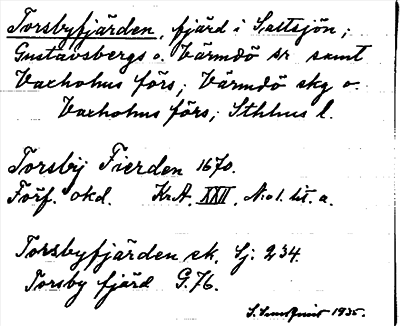 Torsbyfjärden, fjärd i Saltsjön;
Gustavsbergs o. Värmdö sr samt
Vaxholms förs; Värmdö skg o.
Vaxholms förs; Sthlms l.
Torsbÿ Fierden 1670.
Förf. okd. KrA. XXII. N:o 1. lit. a.
Torsbyfjärden, sk. Sj: 234.
Torsby fjärd G. 76.
S. Lundquist 1935.